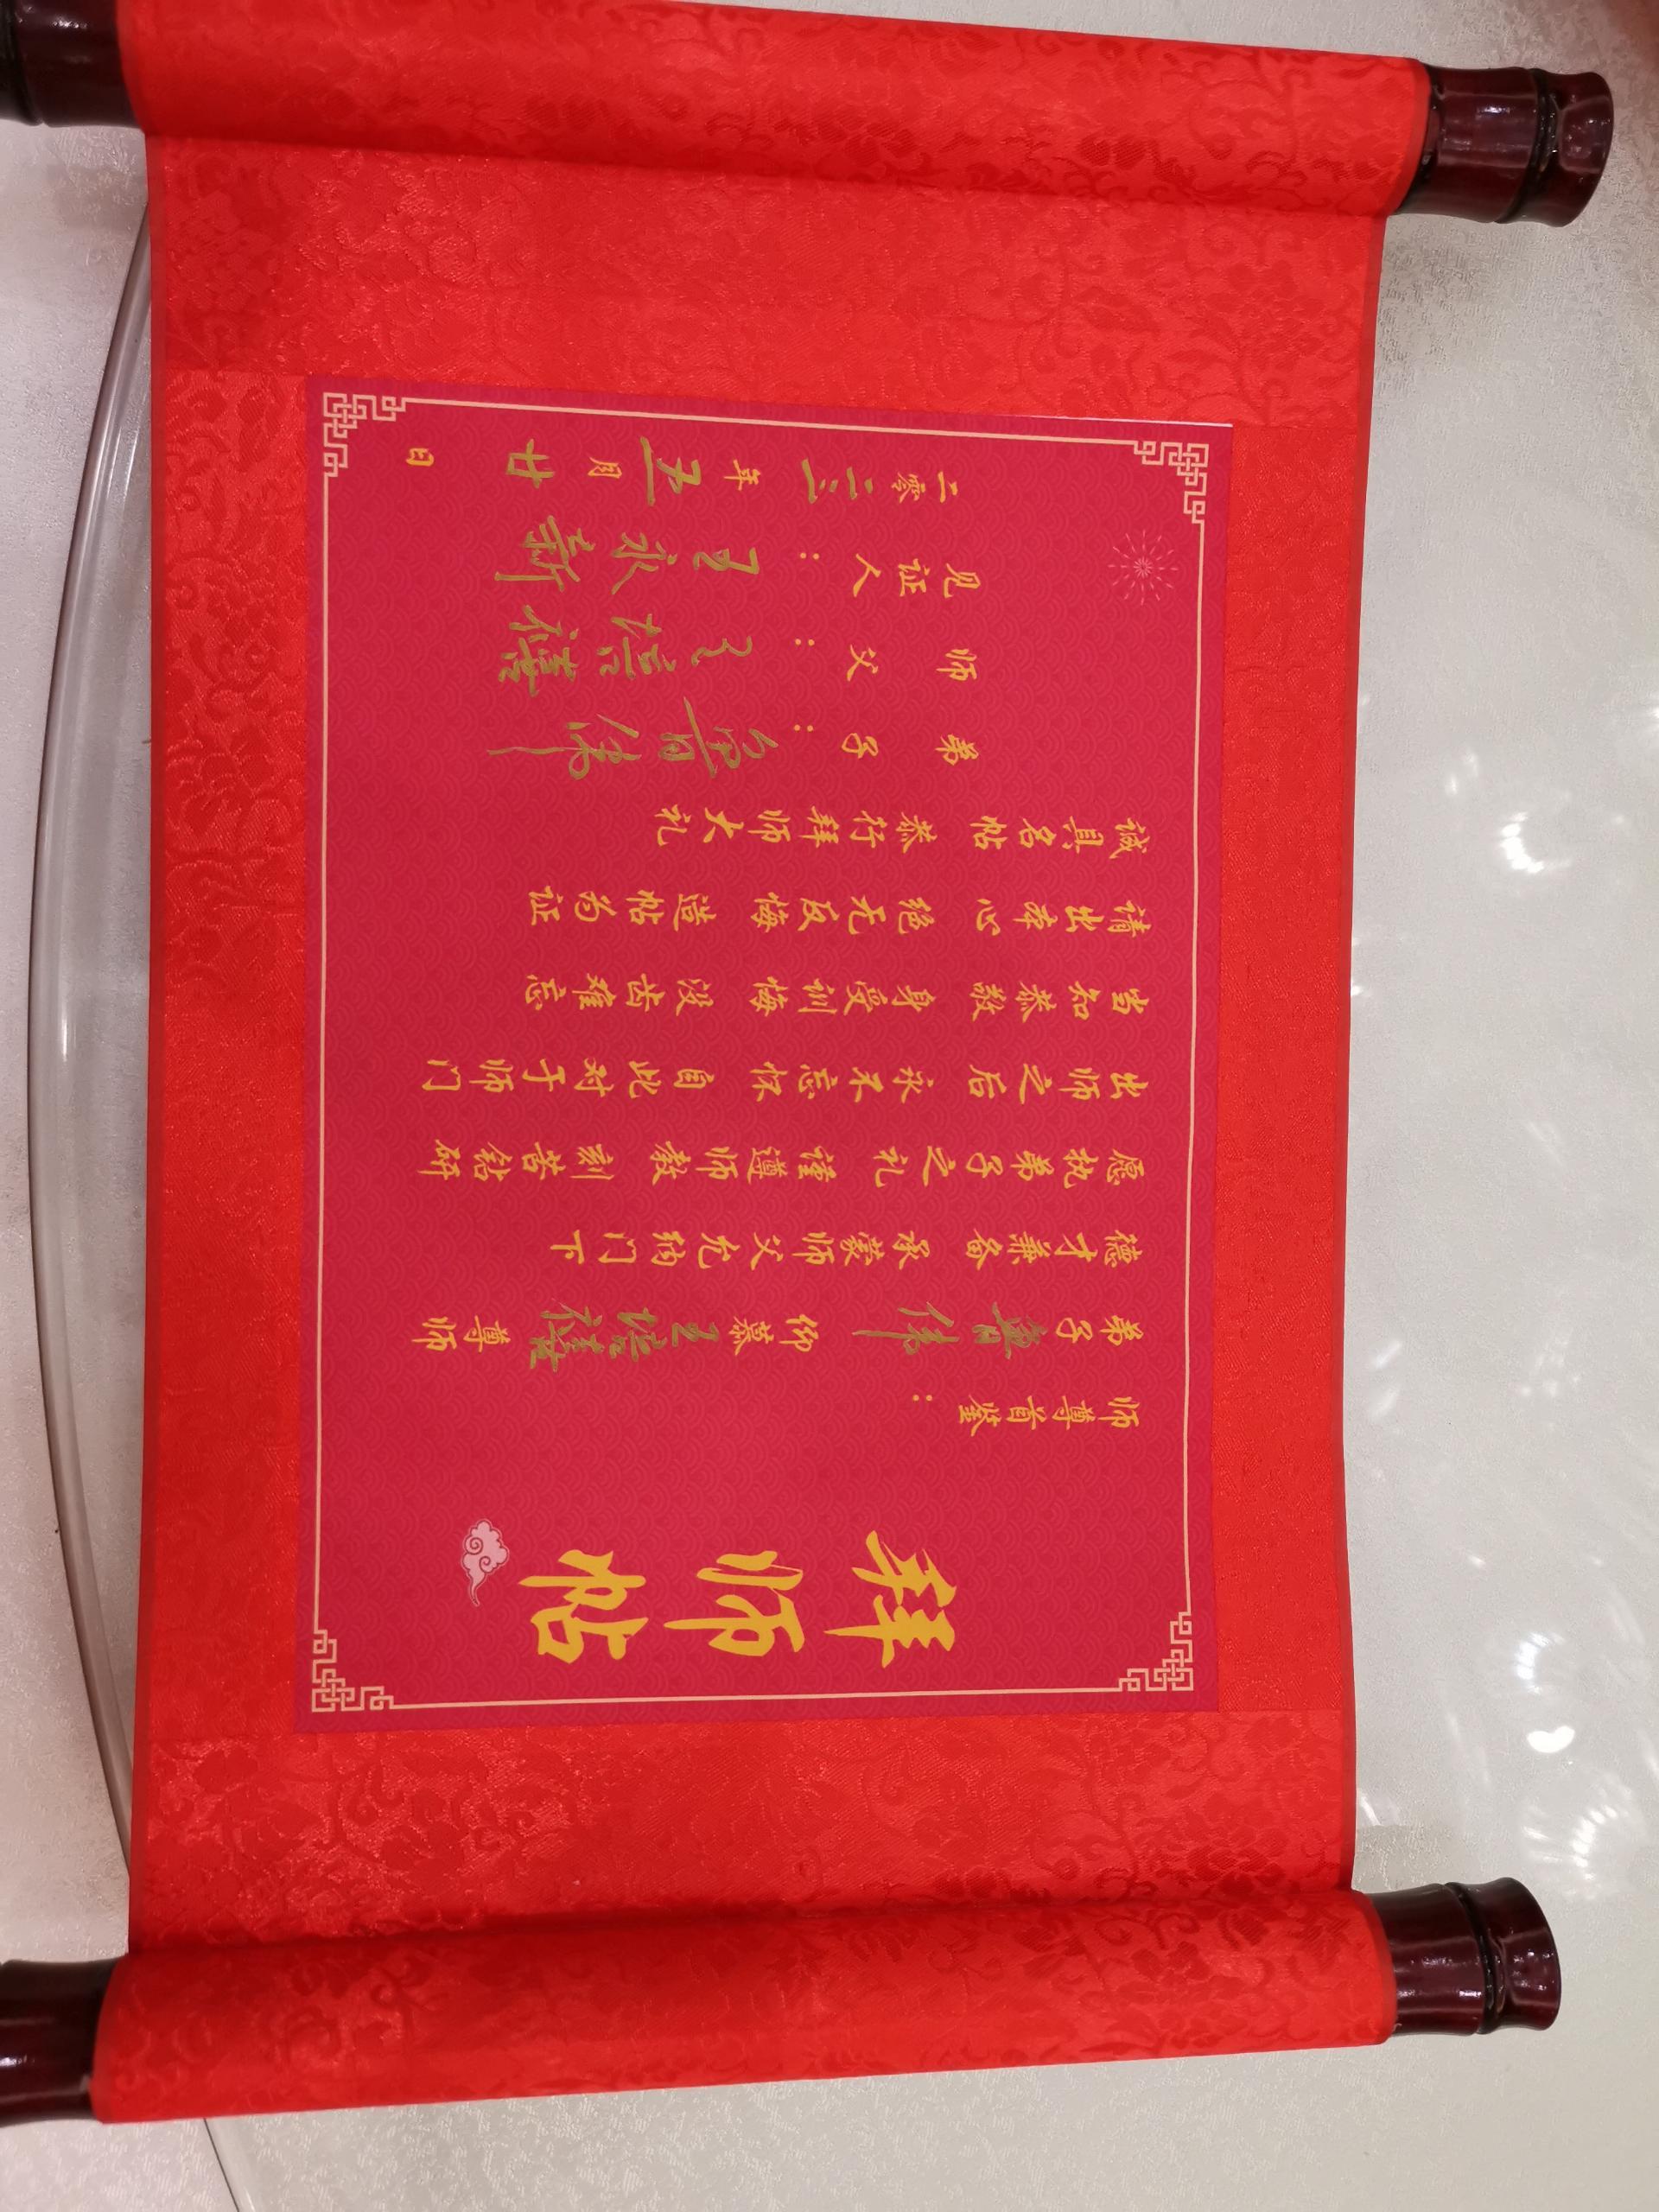 拜师帖
师尊首鉴：
弟子 伟 仰慕 王培 尊师
德才兼备 承蒙师父允纳门下
愿执弟子之礼 谨遵师教 刻苦钻研
出师之后 永不忘怀 自此对于师门
当知恭敬 身受训悔 没齿难忘
请出本心 绝无反悔 造帖为证
诚具名帖 恭行拜师大礼
弟子： 伟
师父：王培
见证人：王永新
二零二三年五月廿日